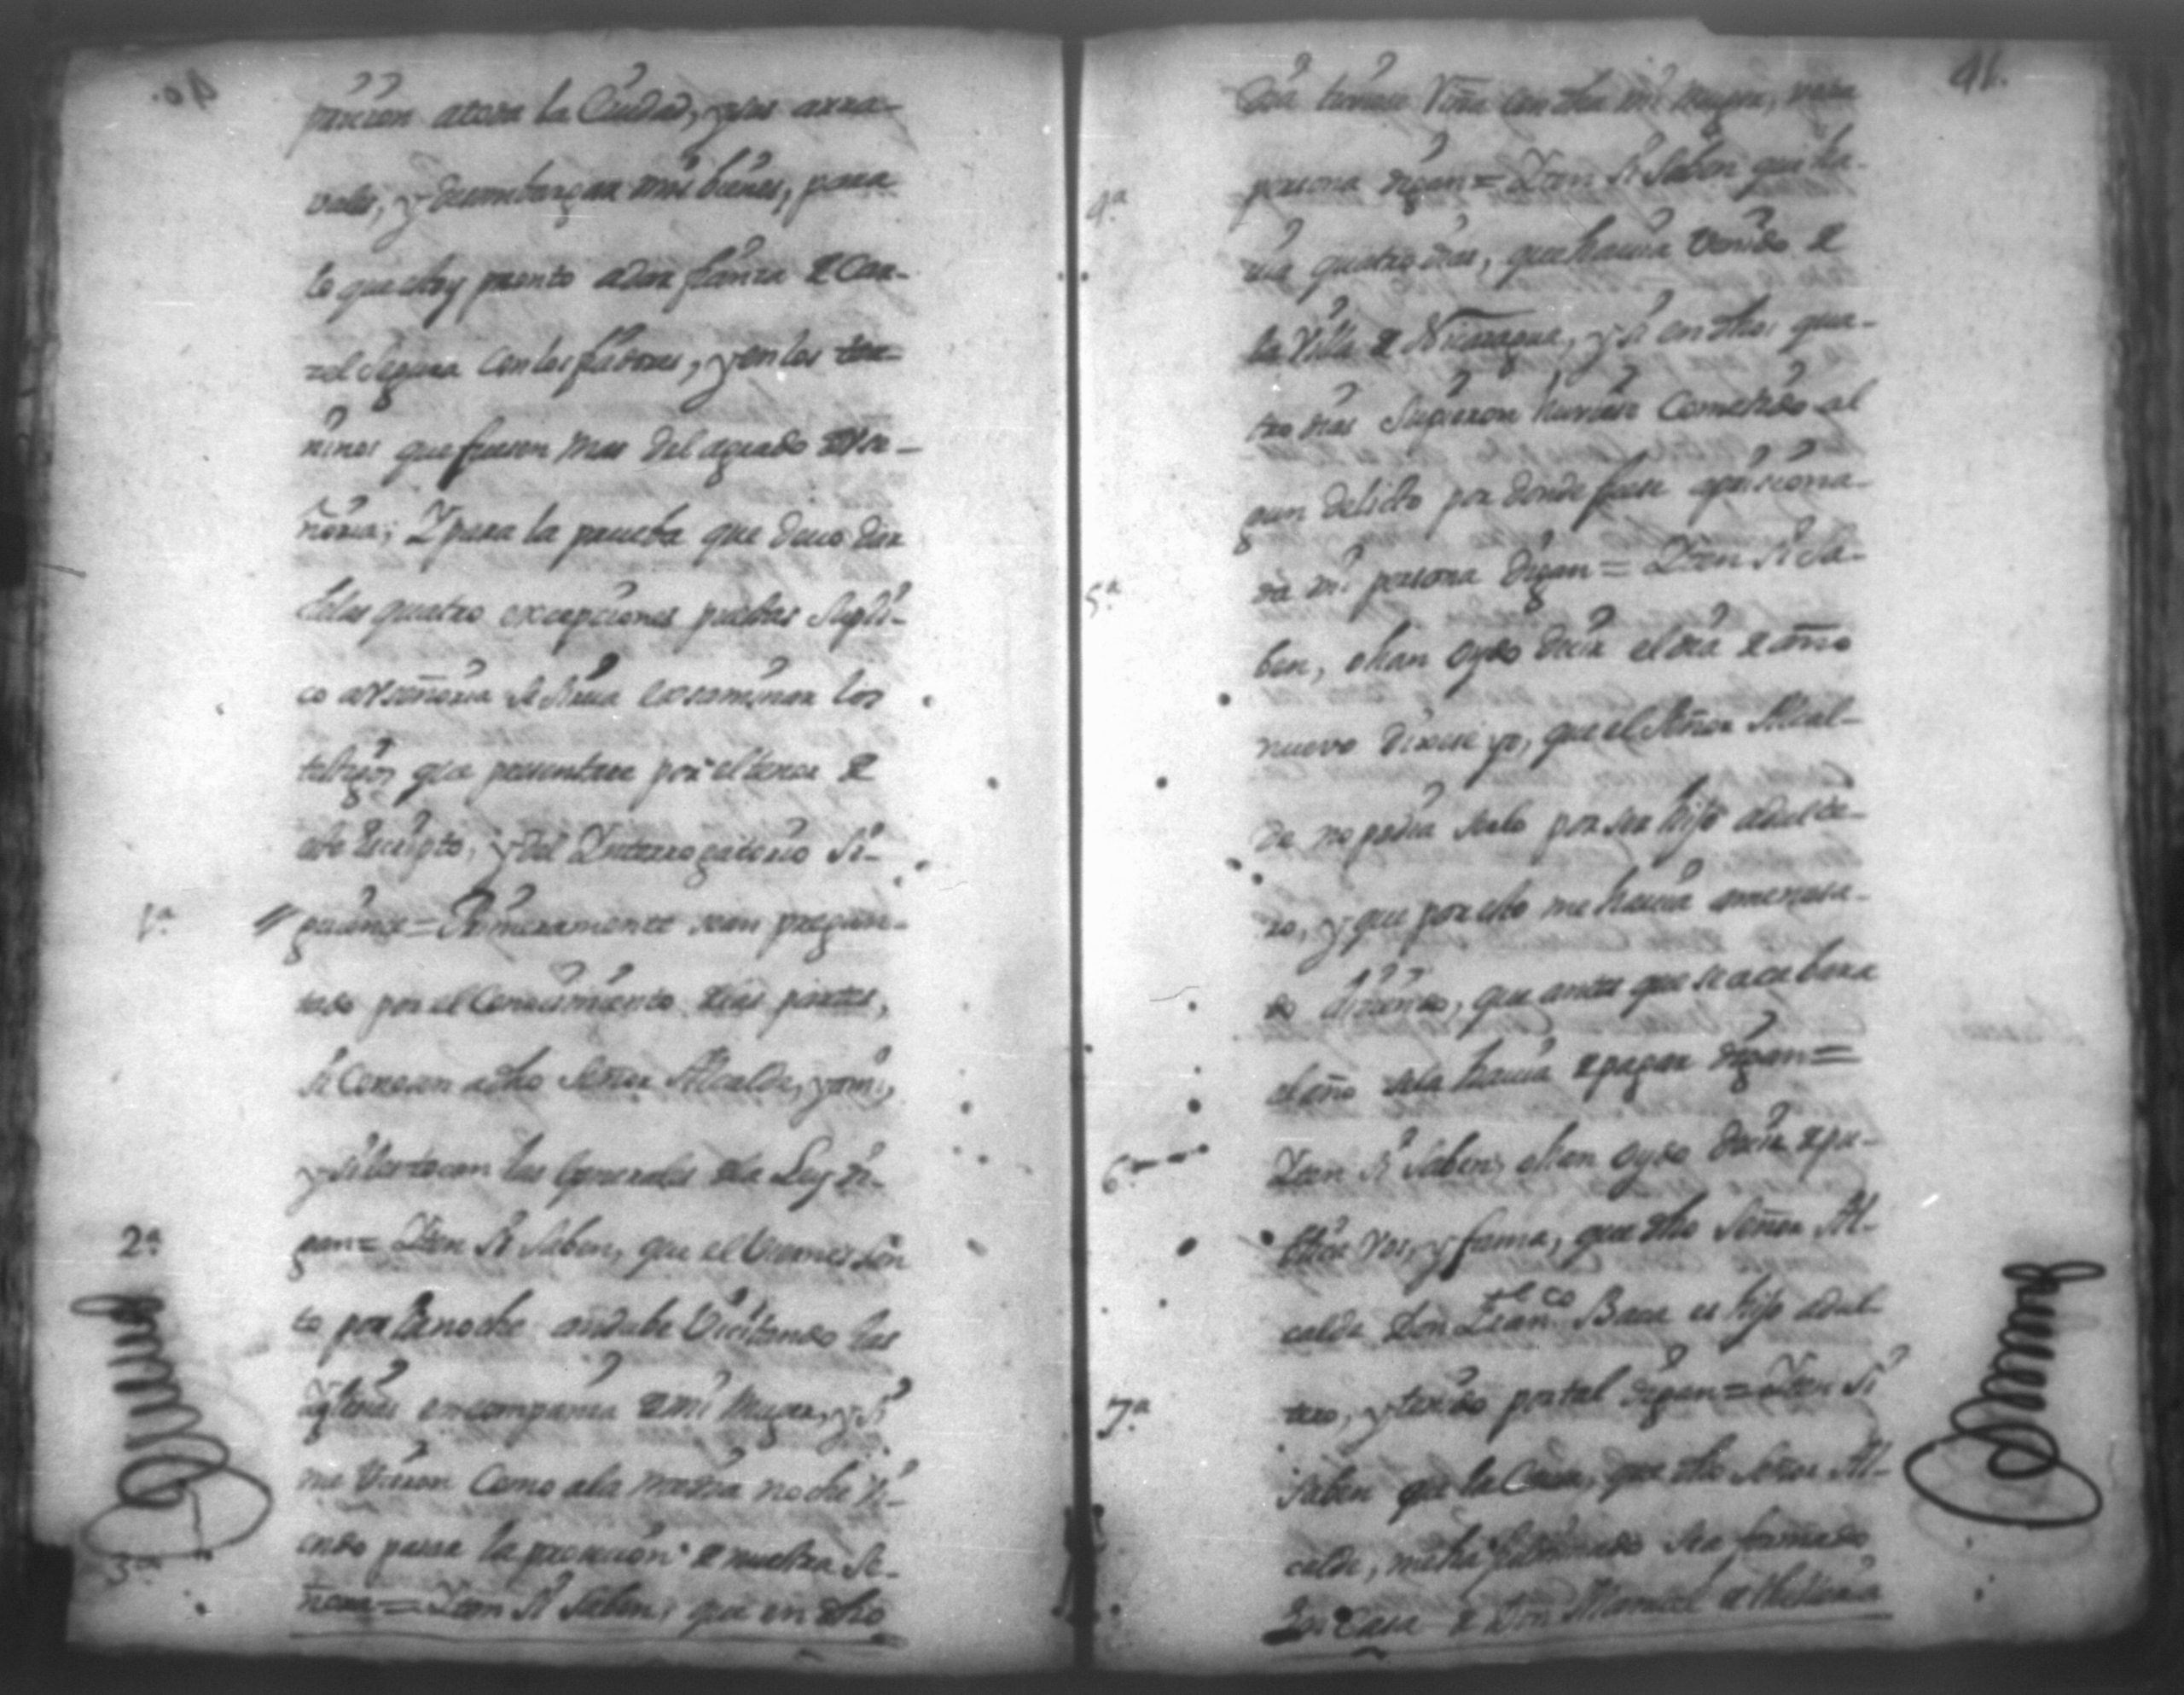 40.
paricion atoda la Ciudad, y sus arra-
vales, y desembargar mis bienes, para
lo que estoy pronto adar fianza de Car-
zel Segura con los fiadores, y en los ter-
minos que fuesen mas del agrado de Vse-
ñoria; Y para la prueba que devo dar
delas quatro excepciones puestas Supli-
co a Vseñoria se Sirva exsaminar los
testigos que presentare por el tenor de
este escripto, y del Interrogatorio Si-
1ª guiente = Primeramente sean pregun-
tado por el Conosimiento delas partes,
si Conosen adho Señor Alcalde, y ami,
y si les tocan las Generales dela Ley di-
2ª gan = Yten Si Saben, que el Viernes San
to por la noche andube Vicitando las
Yglesias en compañia de mi Muger, y si
me Vieron Como ala media noche vi-
endo pasar la prosecion de nuestra Se-
3ª ñora = Yten Si Saben, que en dho
41.
dia tuviese Riña con dha mi Muger, u otra
4ª persona digan = Yten Si Saben que ha-
via quatro dias, que havia venido de
la Villa de Nicaragua, y si en dhos qua-
tro dias Supieron huviese Cometido al
gun delicto por donde fuese aprisiona-
5ª da mi persona digan = Yten Si Sa-
ben, o han oydo decir el dia de año
nuevo dixese yo, que el Señor Alcal-
de no podia serlo por ser hijo adulte-
ro, y que por esto me havia amenasa-
do disiendo, que antes que se acabara
el año sela havia de pagar digan =
6ª Yten Si Saben, o han oydo decir de pu-
blica Vos, y fama, que dho Señor Al-
calde Don Franco Baca es hijo adul
7ª tero, y tenido por tal digan = Yten Si
saben que la Causa, que dho Señor Al-
calde, me ha fulminado sea formado
En Casa de Don Manuel de